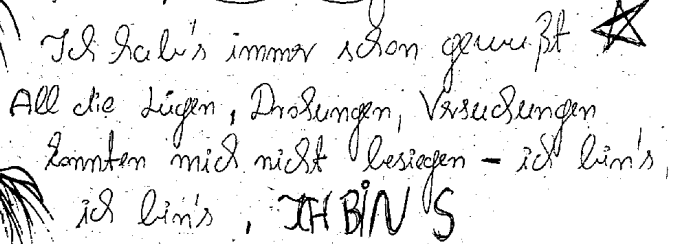 Ich hab's immer schon gewußt
All die Lügen, Drohungen, Versuchungen
konnten mich nicht besiegen – ich bin's,
ich bin's, ICH BIN'S